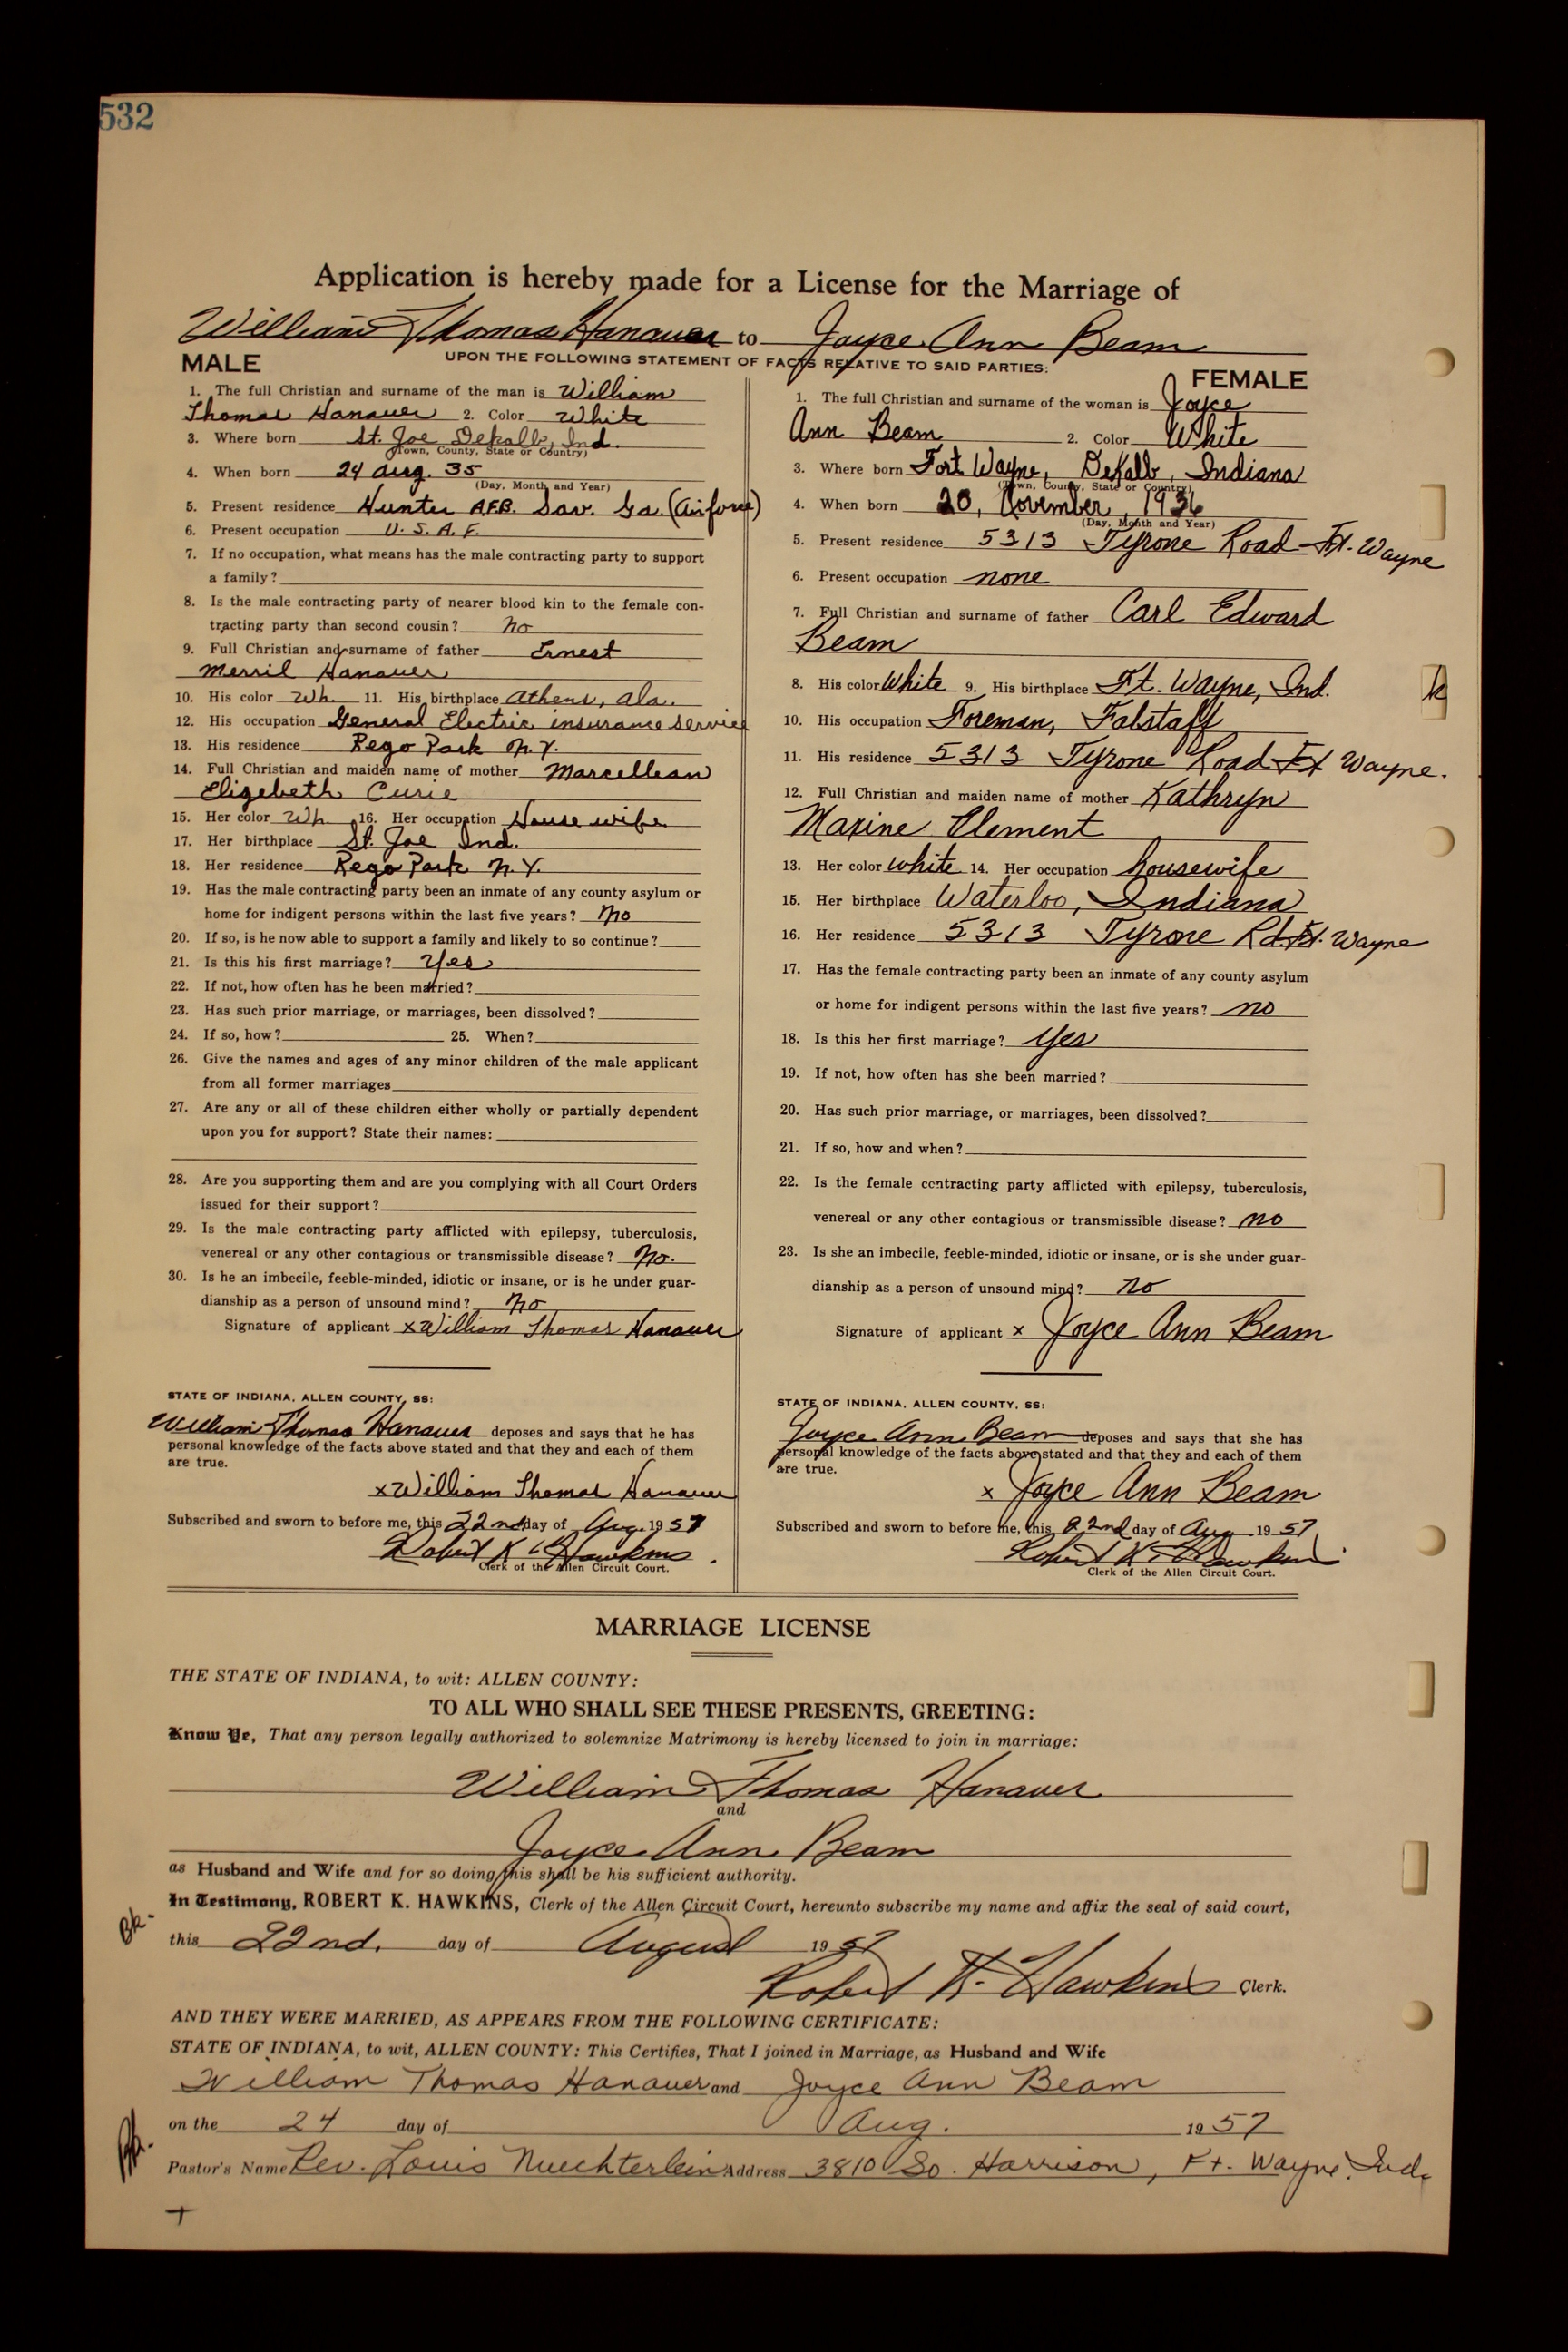 532
Application is hereby made for a License for the Marriage of
William Thomas Hanauer to Joyce Ann Beam
UPON THE FOLLOWING STATEMENT OF FACTS RELATIVE TO SAID PARTIES:
MALE
1. The full Christian and surname of the man is William
Thomas Hanauer 2. Color White
3. Where born St. Joe Dekalb, Ind.
(Town, County, State or Country)
4. When born 24 Aug. 35
(Day, Month and Year)
5. Present residence Hunter A.F.B. Sav. Ga. (Airforce)
6. Present occupation U.S.A.F.
7. If no occupation, what means has the male contracting party to support
a family?
8. Is the male contracting party of nearer blood kin to the female con-
tracting party than second cousin? no
9. Full Christian and surname of father Ernest
Merril Hanauer
10. His color Wh. 11. His birthplace Athens, Ala.
12. His occupation General Electric insurance service
13. His residence Rego Park N.Y.
14. Full Christian and maiden name of mother Marcellean
Elizebeth Curie
15. Her color Wh. 16. Her occupation House wife
17. Her birthplace St. Joe Ind.
18. Her residence Rego Park N.Y.
19. Has the male contracting party been an inmate of any county asylum or
home for indigent persons within the last five years? No
20. If so, is he now able to support a family and likely to so continue?
21. Is this his first marriage? Yes
22. If not, how often has he been married?
23. Has such prior marriage, or marriages, been dissolved?
24. If so, how? 25. When?
26. Give the names and ages of any minor children of the male applicant
from all former marriages
27. Are any or all of these children either wholly or partially dependent
upon you for support? State their names:
28. Are you supporting them and are you complying with all Court Orders
issued for their support?
29. Is the male contracting party afflicted with epilepsy, tuberculosis,
venereal or any other contagious or transmissible disease? No.
30. Is he an imbecile, feeble-minded, idiotic or insane, or is he under guar-
dianship as a person of unsound mind? No
Signature of applicant x William Thomas Hanauer
STATE OF INDIANA, ALLEN COUNTY, SS:
William Thomas Hanauer deposes and says that he has
personal knowledge of the facts above stated and that they and each of them
are true.
x William Thomas Hanauer
Subscribed and sworn to before me, this 22nd day of Aug. 1957
Robert K. Hawkins
Clerk of the Allen Circuit Court.
FEMALE
1. The full Christian and surname of the woman is Joyce
Ann Beam 2. Color White
3. Where born Fort Wayne, DeKalb, Indiana
(Town, County, State or Country)
4. When born 20, November, 1936
(Day, Month and Year)
5. Present residence 5313 Tyrone Road-Ft. Wayne
6. Present occupation none
7. Full Christian and surname of father Carl Edward
Beam
8. His color White 9. His birthplace Ft. Wayne, Ind.
10. His occupation Foreman, Falstaff
11. His residence 5313 Tyrone Road-Ft Wayne.
12. Full Christian and maiden name of mother Kathryn
Maxine Clement
13. Her color white 14. Her occupation housewife
15. Her birthplace Waterloo, Indiana
16. Her residence 5313 Tyrone Rd. Ft. Wayne
17. Has the female contracting party been an inmate of any county asylum
or home for indigent persons within the last five years? no
18. Is this her first marriage? yes
19. If not, how often has she been married?
20. Has such prior marriage, or marriages, been dissolved?
21. If so, how and when?
22. Is the female contracting party afflicted with epilepsy, tuberculosis,
venereal or any other contagious or transmissible disease? no
23. Is she an imbecile, feeble-minded, idiotic or insane, or is she under guar-
dianship as a person of unsound mind? no
Signature of applicant x Joyce Ann Beam
STATE OF INDIANA, ALLEN COUNTY, SS:
Joyce Ann Beam deposes and says that she has
personal knowledge of the facts above stated and that they and each of them
are true.
x Joyce Ann Beam
Subscribed and sworn to before me, this 22nd day of Aug 1957
Robert K. Hawkins
Clerk of the Allen Circuit Court.
MARRIAGE LICENSE
THE STATE OF INDIANA, to wit: ALLEN COUNTY:
TO ALL WHO SHALL SEE THESE PRESENTS, GREETING:
Know Ye, That any person legally authorized to solemnize Matrimony is hereby licensed to join in marriage:
William Thomas Hanauer
and
Joyce Ann Beam
as Husband and Wife and for so doing this shall be his sufficient authority.
In Testimony, ROBERT K. HAWKINS, Clerk of the Allen Circuit Court, hereunto subscribe my name and affix the seal of said court,
Bk-
this 22nd. day of August 1957
Robert K. Hawkins Clerk.
AND THEY WERE MARRIED, AS APPEARS FROM THE FOLLOWING CERTIFICATE:
STATE OF INDIANA, to wit, ALLEN COUNTY: This Certifies, That I joined in Marriage, as Husband and Wife
William Thomas Hanauer and Joyce Ann Beam
on the 24 day of Aug. 1957
Pastor's Name Rev. Louis Nuechterlein Address 3810 So. Harrison, Ft. Wayne, Ind.